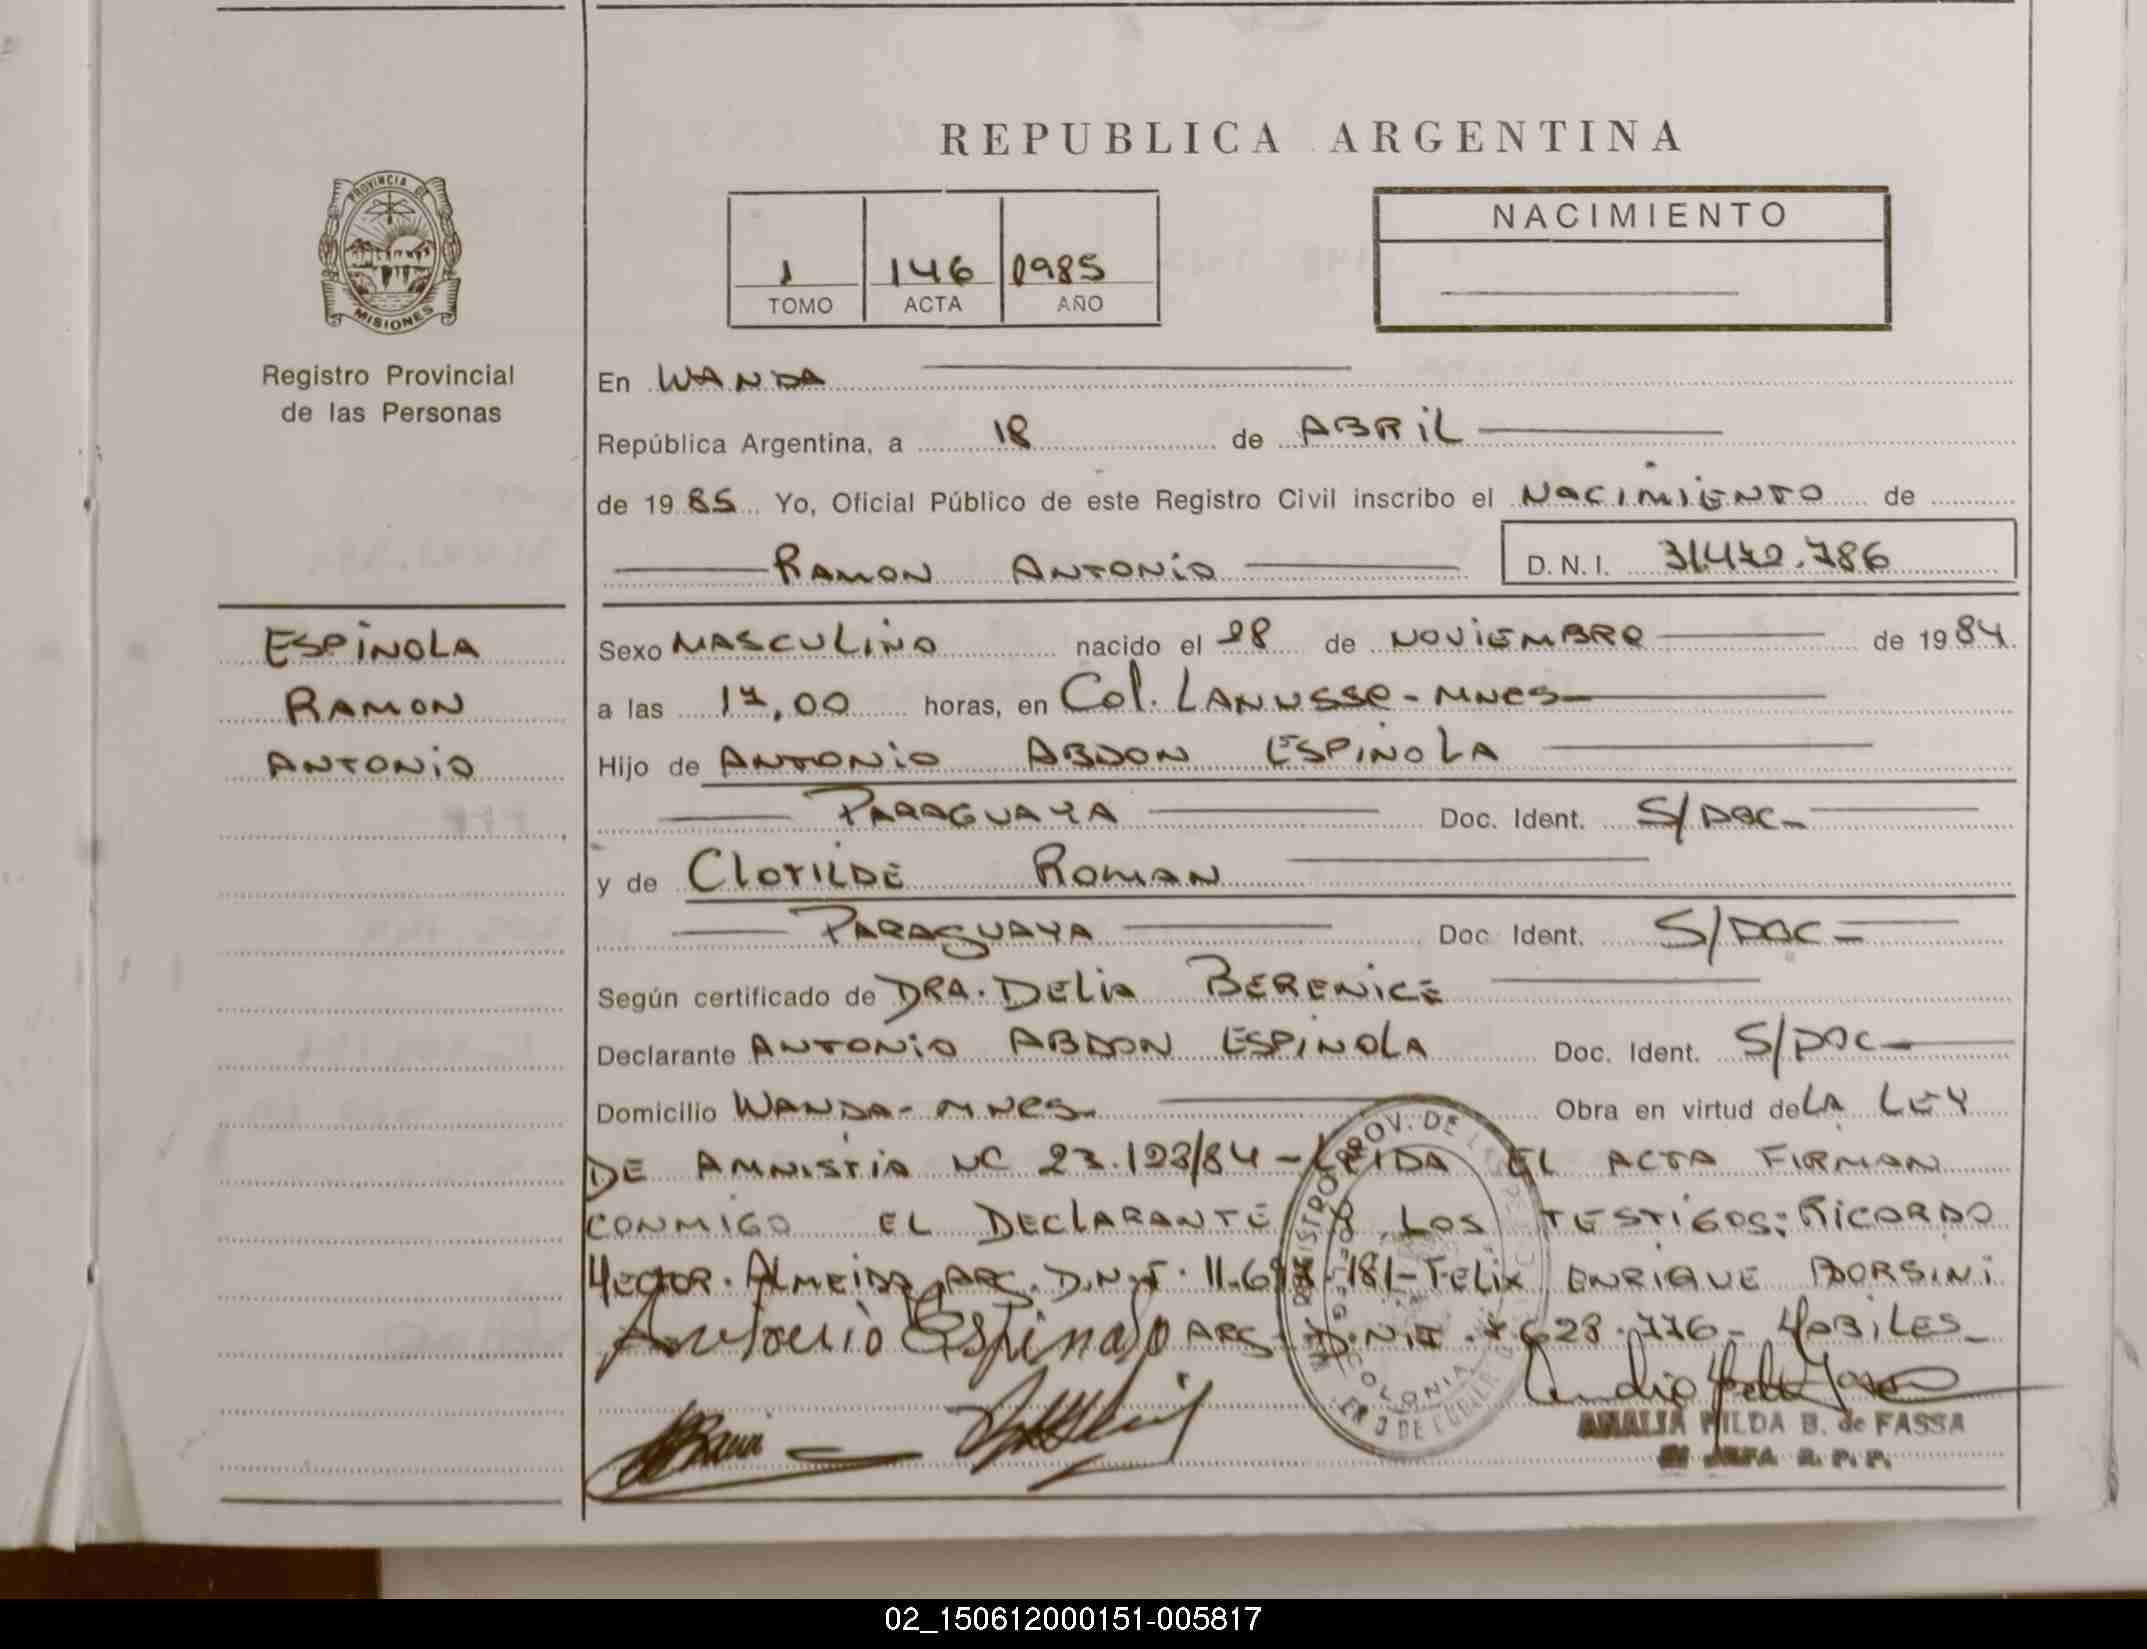 REPUBLICA ARGENTINA
PROVINCIA DE MISIONES
Registro Provincial
de las Personas
1 146 1985
TOMO ACTA AÑO
NACIMIENTO
En WANDA
República Argentina, a 18 de ABRIL
de 1985 Yo, Oficial Público de este Registro Civil inscribo el NACIMIENTO de
RAMON ANTONIO D.N.I. 31.472.786
ESPINOLA
RAMON
ANTONIO
Sexo MASCULINO nacido el 28 de NOVIEMBRE de 1984
a las 17,00 horas, en Col. LANUSSE-MNES
Hijo de ANTONIO ABDON ESPINOLA
PARAGUAYA Doc. Ident. S/DOC
y de CLOTILDE ROMAN
PARAGUAYA Doc Ident. S/DOC
Según certificado de DRA. DELIA BERENICE
Declarante ANTONIO ABDON ESPINOLA Doc. Ident. S/DOC
Domicilio WANDA-MNES Obra en virtud de LA LEY
DE AMNISTIA NC 23.128/84-LEIDA EL ACTA FIRMAN
CONMIGO EL DECLARANTE Y LOS TESTIGOS: RICARDO
HECTOR ALMEIDA ARG. D.N.I. 181-FELIX ENRIQUE
ARG D.N.I. 628.776- HABILES
Antonio Espinola
AMALIA HILDA B. de FASSA
JEFA R. P. P.
COLONIA
02_150612000151-005817